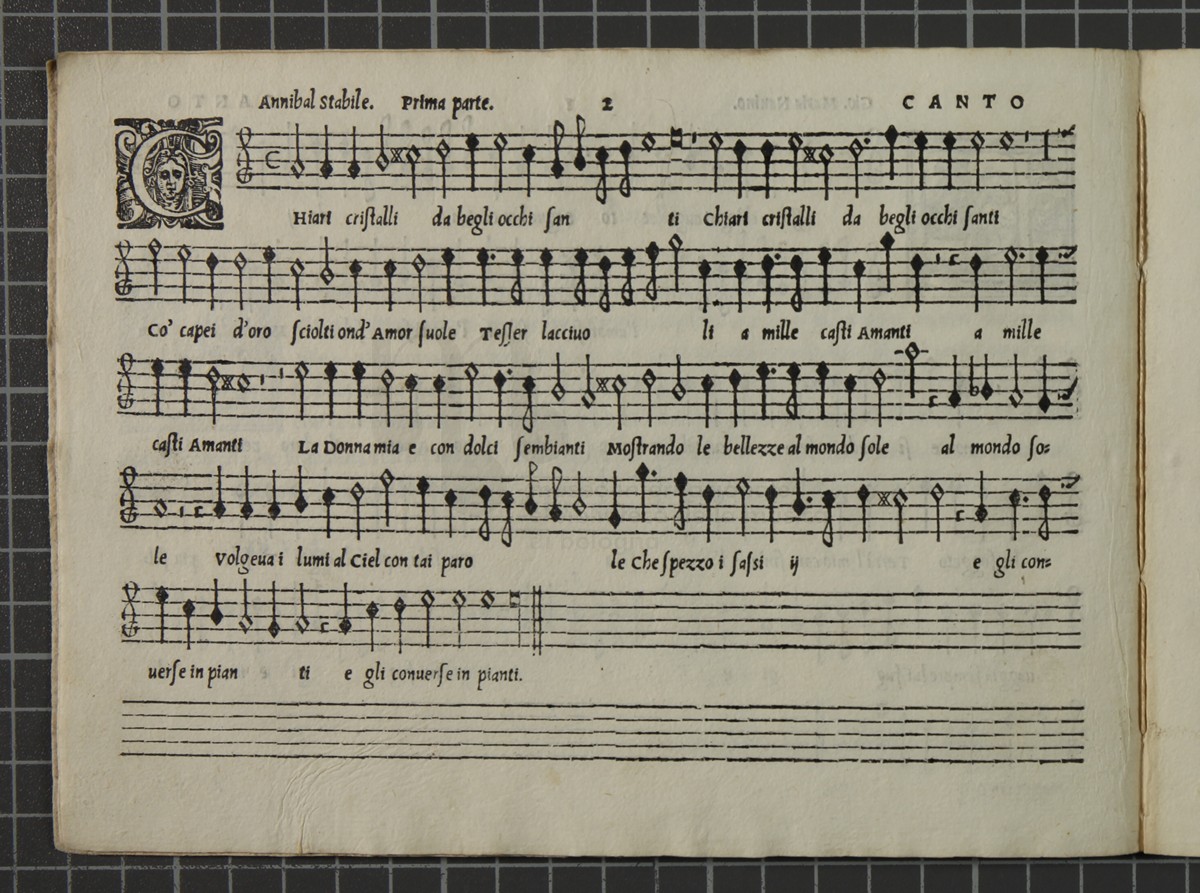 Annibal Stabile. Prima parte. 2 CANTO
CHiari criſtalli da begli occhi ſan ti Chiari criſtalli da begli occhi ſanti
Co' capei d'oro ſciolti ond'Amor ſuole Teſſer lacciuo li a mille caſti Amanti a mille
caſti Amanti La Donna mia e con dolci ſembianti Moſtrando le bellezze al mondo ſole al mondo ſo=
le Volgeua i lumi al Ciel con tai paro le Che ſpezzo i ſaſsi ij e gli con=
uerſe in pian ti e gli conuerſe in pianti.